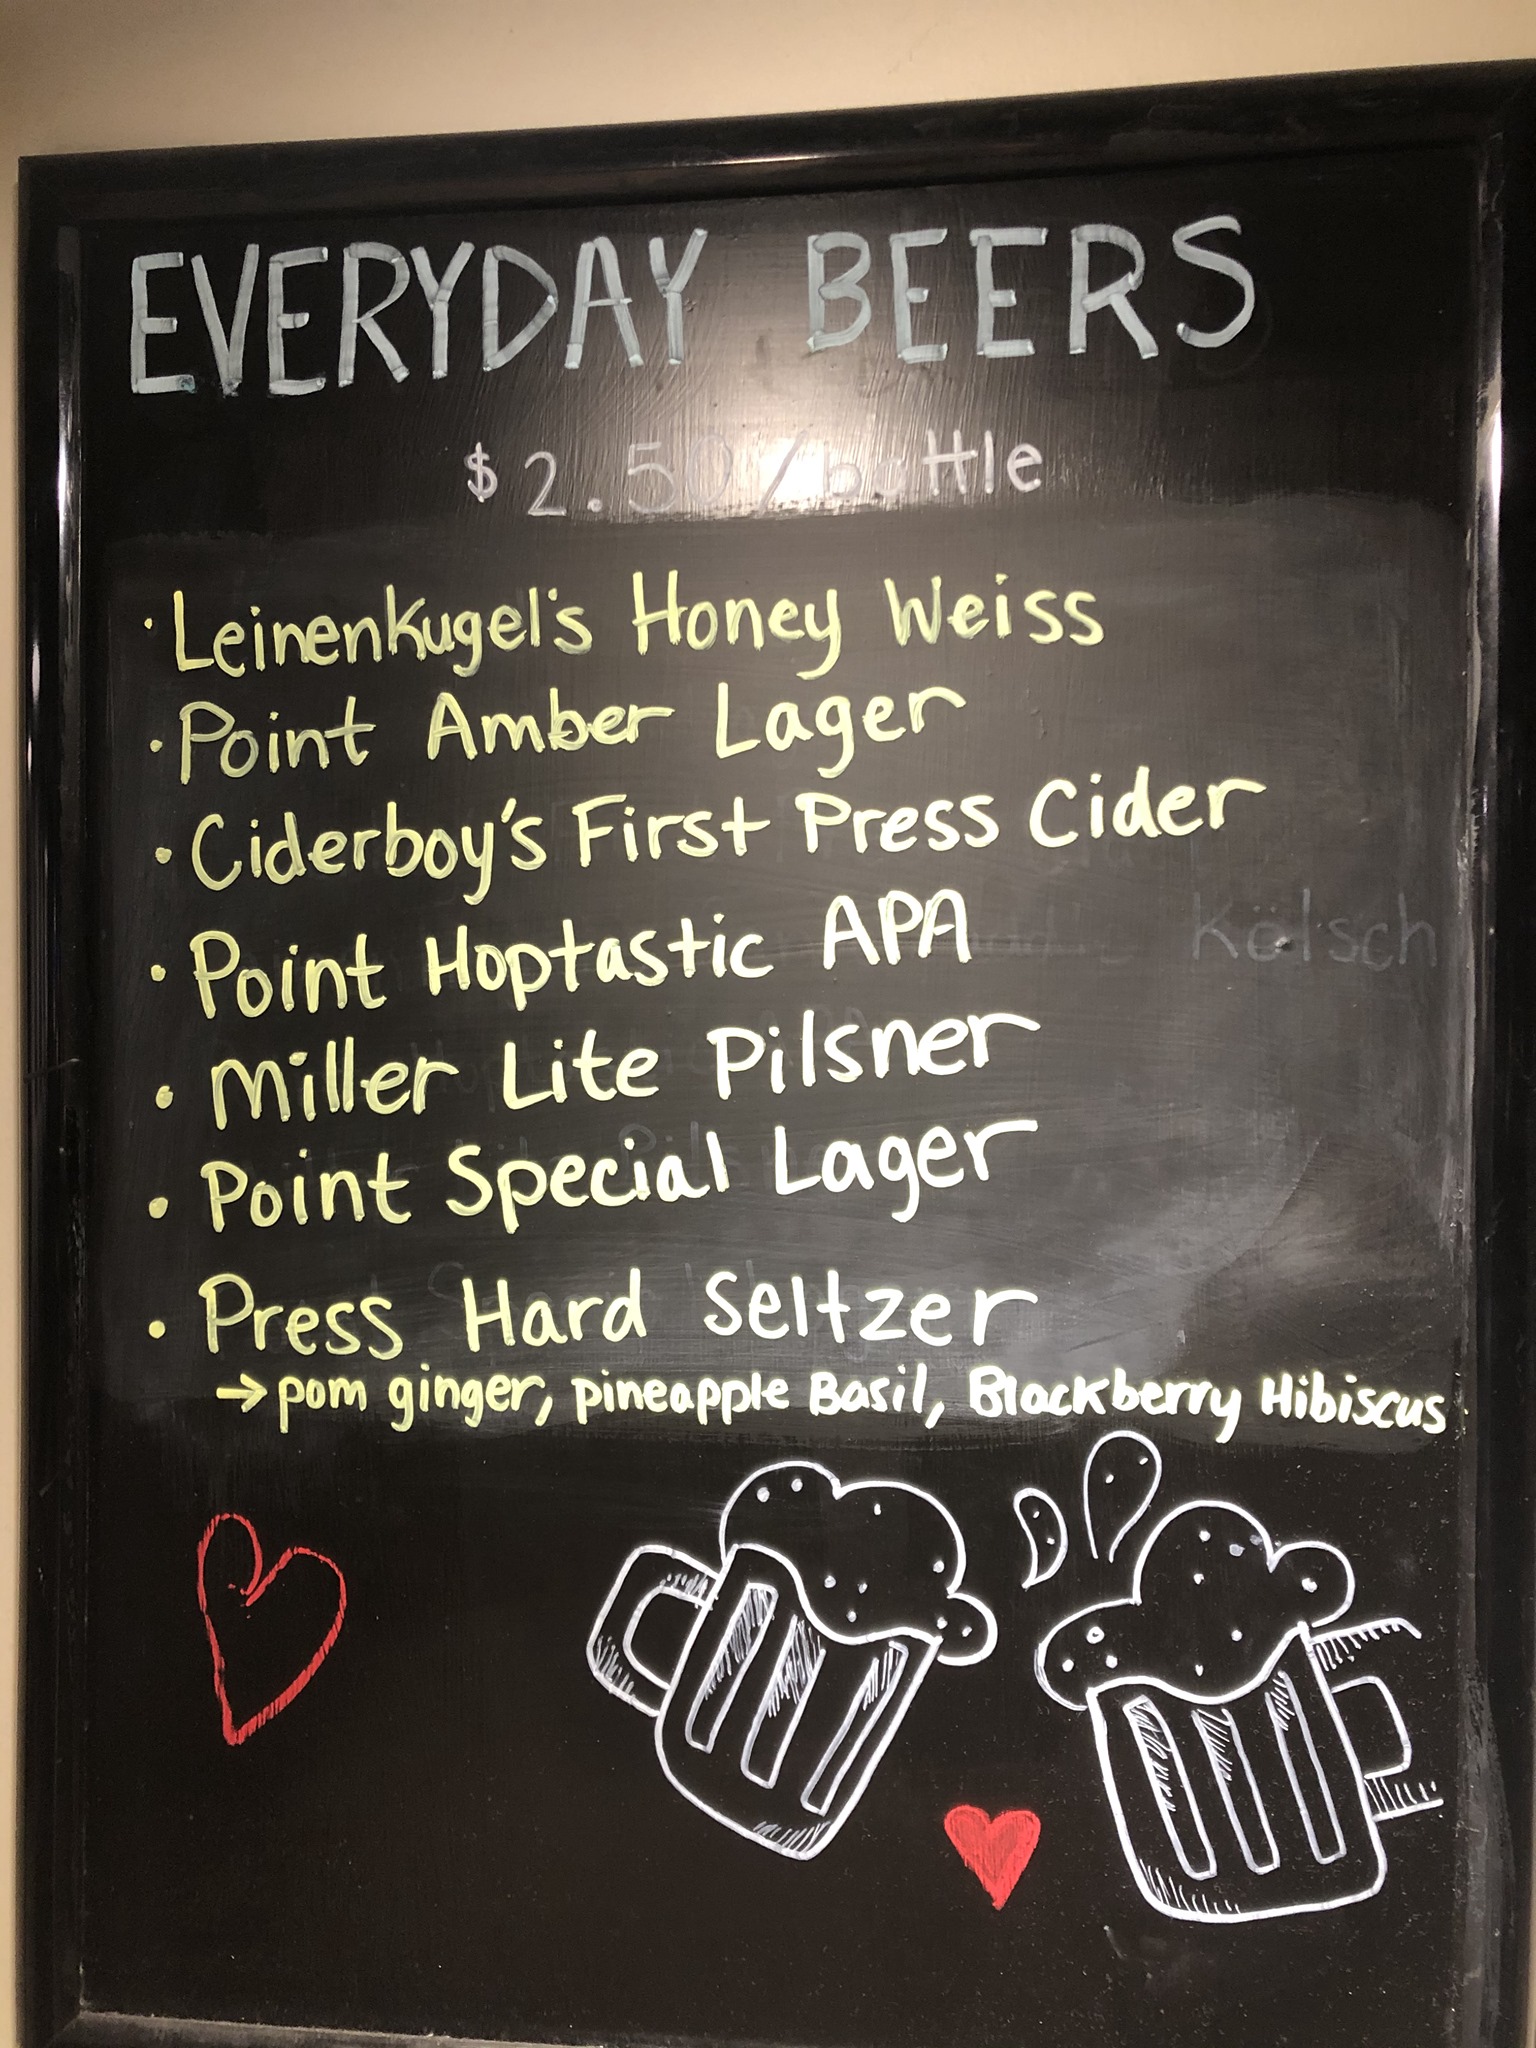 EVERYDAY BEERS
$2.50/bottle
· Leinenkugel's Honey Weiss
· Point Amber Lager
· Ciderboy's First Press Cider
· Point Hoptastic APA
Kölsch
· Miller Lite Pilsner
· Point Special Lager
· Press Hard Seltzer
→ pom ginger, pineapple Basil, Blackberry Hibiscus